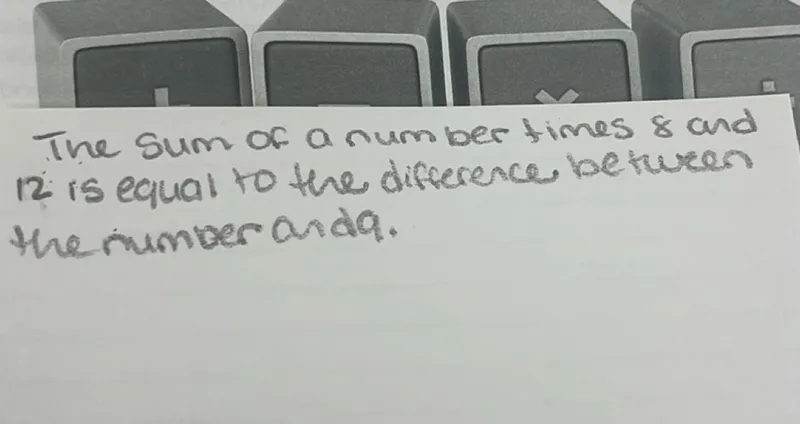 The sum of a number times 8 and
12 is equal to the difference between
the number and 9.